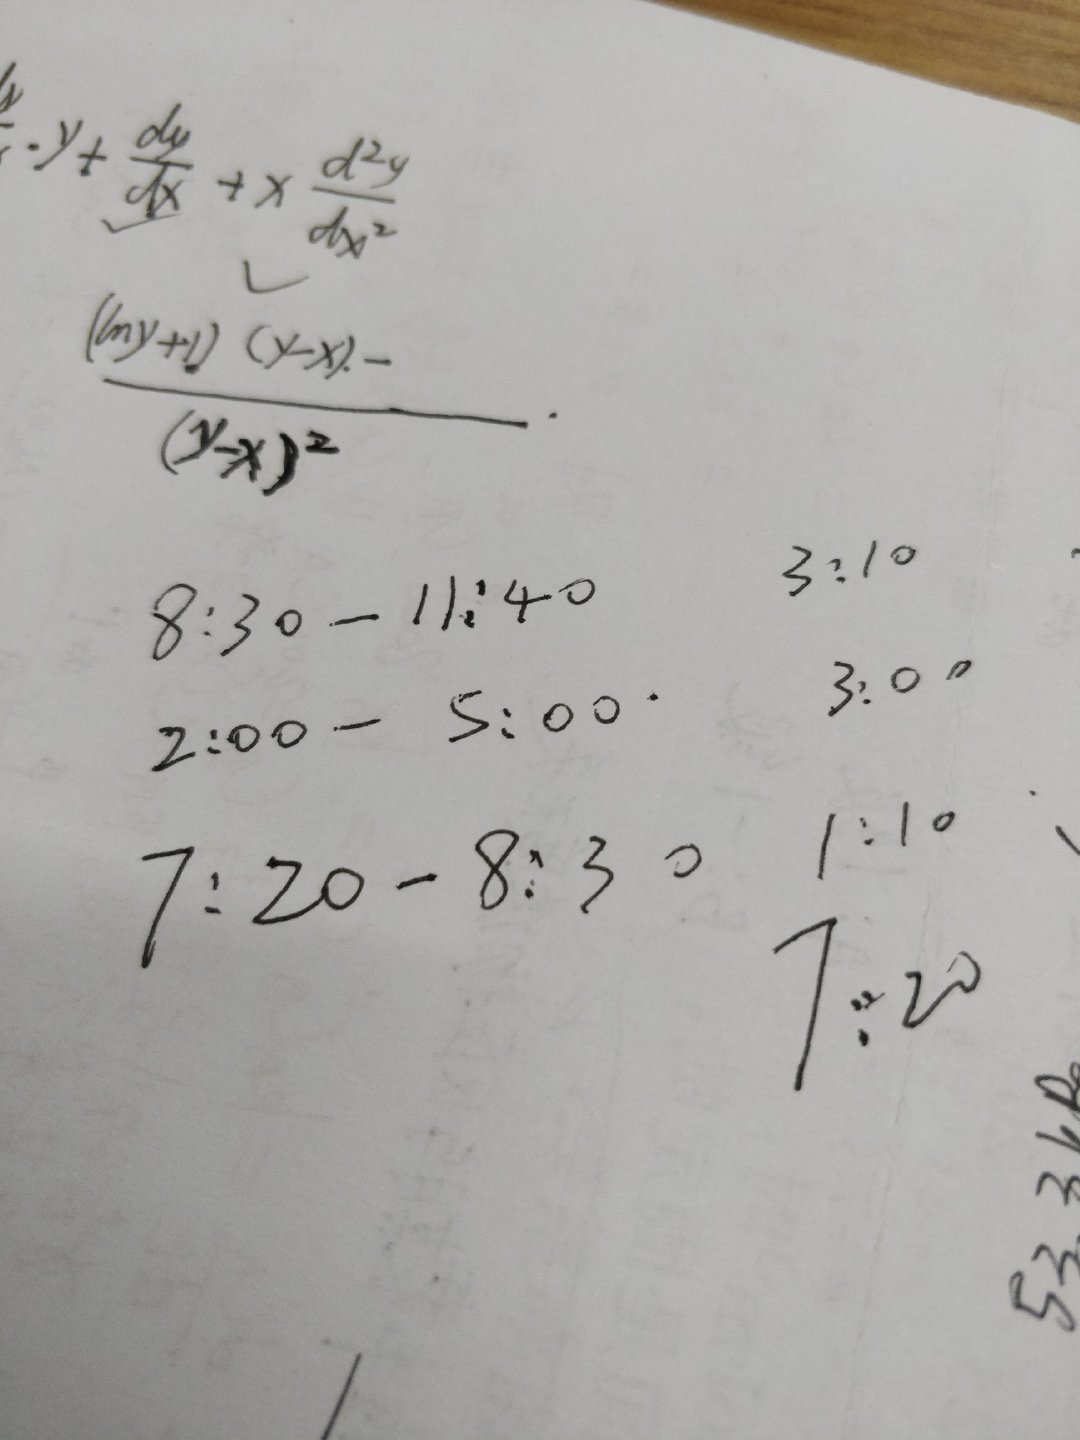 · y + dy/dx + x d²y/dx²
(lny+1) (y-x) -
(y-x)²
8:30 - 11:40 3:10
2:00 - 5:00 3:00
7:20 - 8:30 1:10
7:20
53.3 kPa